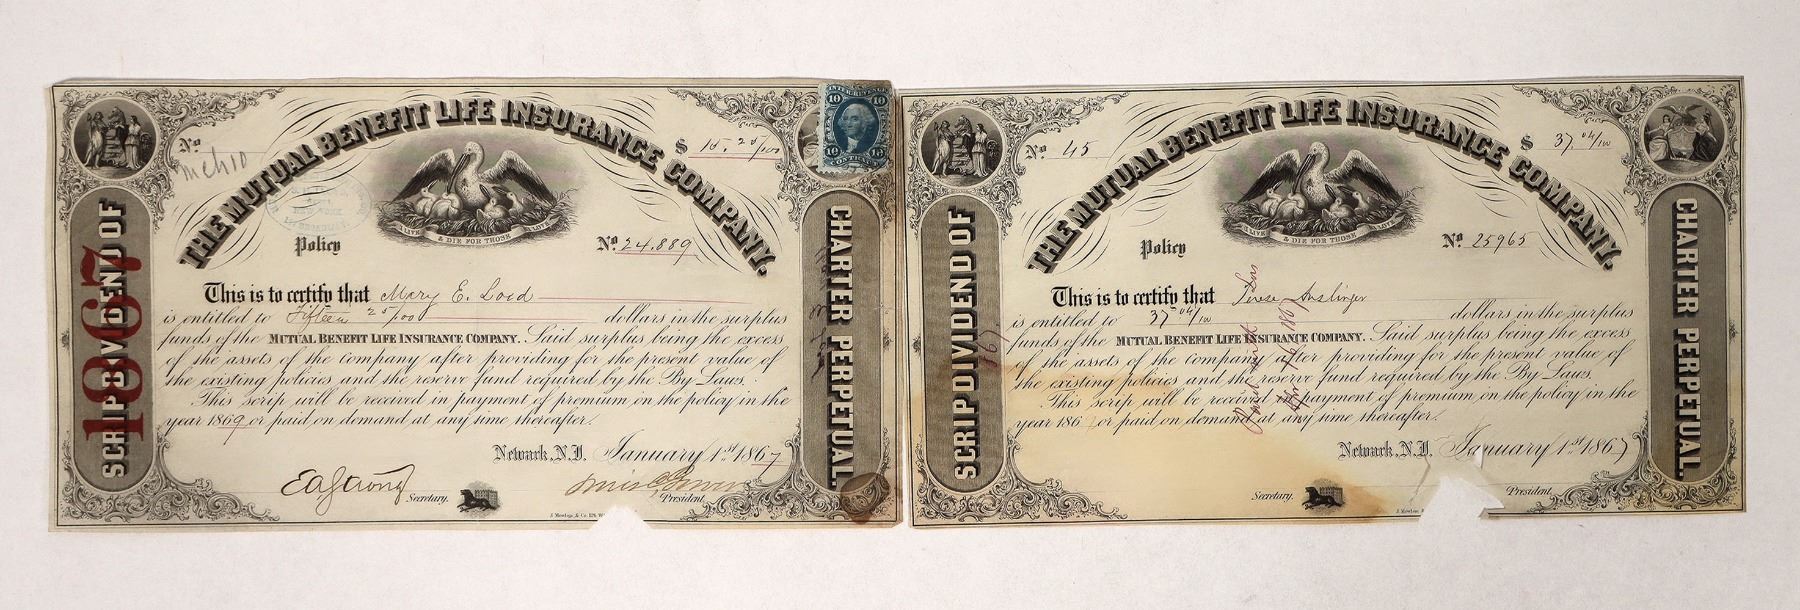 THE MUTUAL BENEFIT LIFE INSURANCE COMPANY.
No
$ 15. 25/100
INTER. REVENUE
10 10
SCRIP DIVIDEND OF
1867
CHARTER PERPETUAL.
LIVE & DIE FOR THOSE LOVE
Policy No 24.889
This is to certify that Mary E. Lord
is entitled to Fifteen 25/100 dollars in the surplus
funds of the MUTUAL BENEFIT LIFE INSURANCE COMPANY. Said surplus being the excess
of the assets of the company after providing for the present value of
the existing policies and the reserve fund required by the By Laws.
This scrip will be received in payment of premium on the policy in the
year 1869 or paid on demand at any time thereafter.
Newark, N.J. January 1st 1867
Secretary. President.
THE MUTUAL BENEFIT LIFE INSURANCE COMPANY.
No 45
$ 37 04/100
SCRIP DIVIDEND OF
CHARTER PERPETUAL.
LIVE & DIE FOR THOSE LOVE
Policy No 25965
This is to certify that Anslinger
is entitled to 37 04/100 dollars in the surplus
funds of the MUTUAL BENEFIT LIFE INSURANCE COMPANY. Said surplus being the excess
of the assets of the company after providing for the present value of
the existing policies and the reserve fund required by the By Laws.
This scrip will be received in payment of premium on the policy in the
year 186 or paid on demand at any time thereafter.
Newark, N.J. January 1st 1867
Secretary. President.